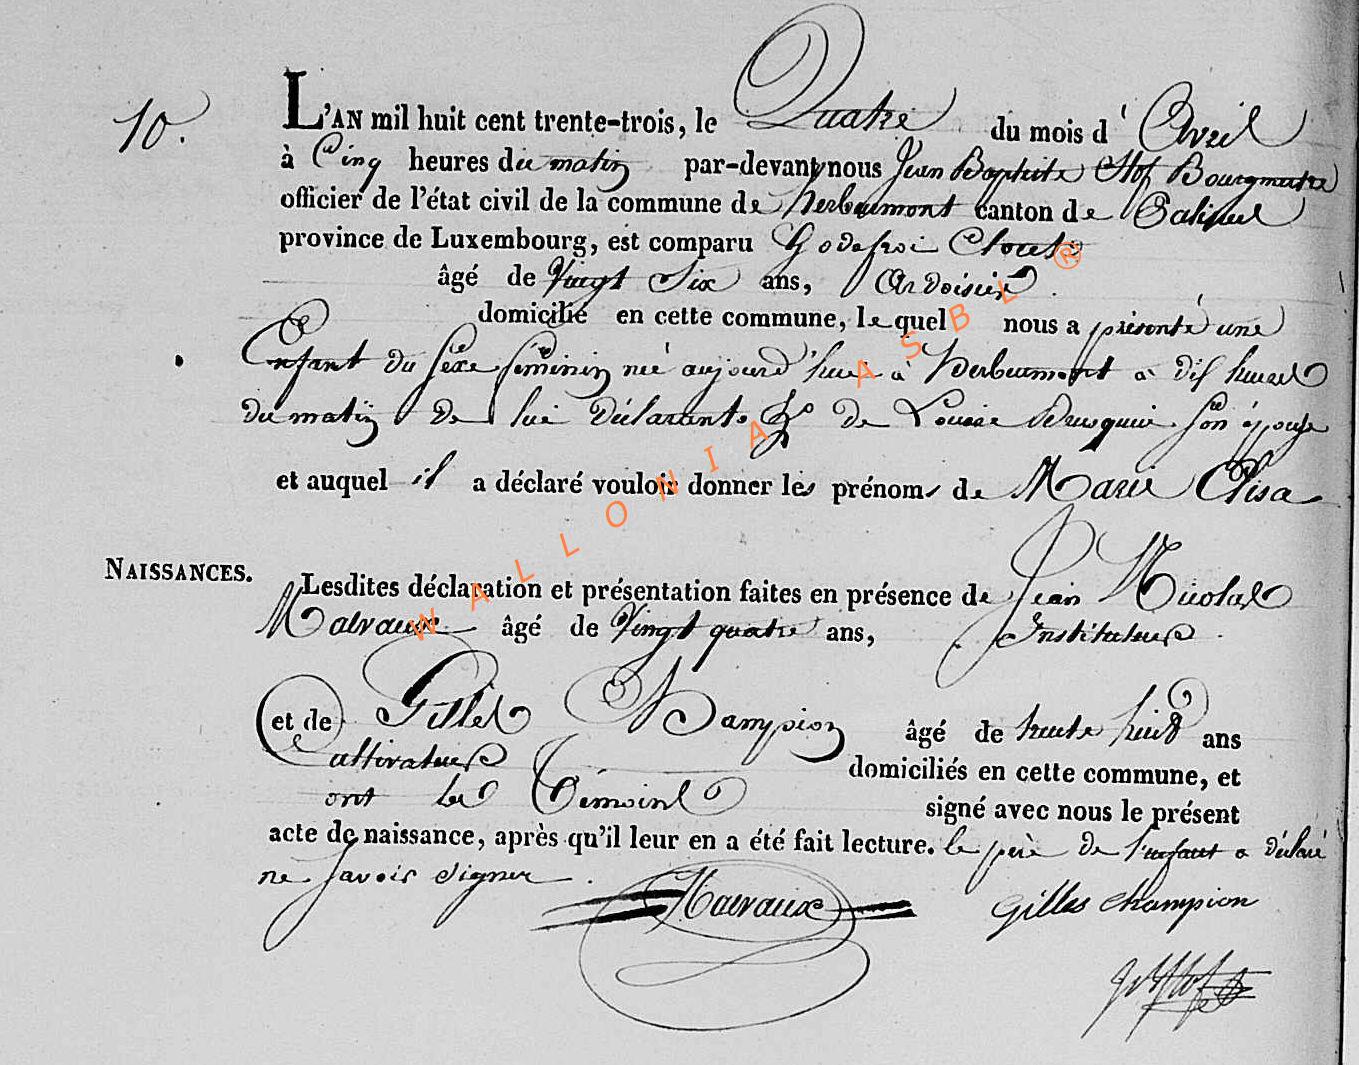 10.
L'AN mil huit cent trente-trois, le Quatre du mois d'Avril
à Cinq heures du matin par-devant nous Jean Baptiste Stof Bourgmestre
officier de l'état civil de la commune de herbeumont canton de Paliseul
province de Luxembourg, est comparu Godefroi Clouet
âgé de Vingt Six ans, Ardoisier.
domicilié en cette commune, lequel nous a présenté une
Enfant du sexe féminin né aujourd'hui à herbeumont a dix heures
du matin de lui déclarant & de Louise son épouse
et auquel il a déclaré vouloir donner les prénoms de Marie Elisa
NAISSANCES.
Lesdites déclaration et présentation faites en présence de Jean Nicolas
Malvaux âgé de Vingt quatre ans, Instituteur.
et de Gilles Champion âgé de trente huit ans
Cultivateur domiciliés en cette commune, et
ont les Témoins signé avec nous le présent
acte de naissance, après qu'il leur en a été fait lecture. le père de l'enfant a déclaré
ne savoir signer.
Malvaux Gilles Champion
WALLONIA ASBL ®